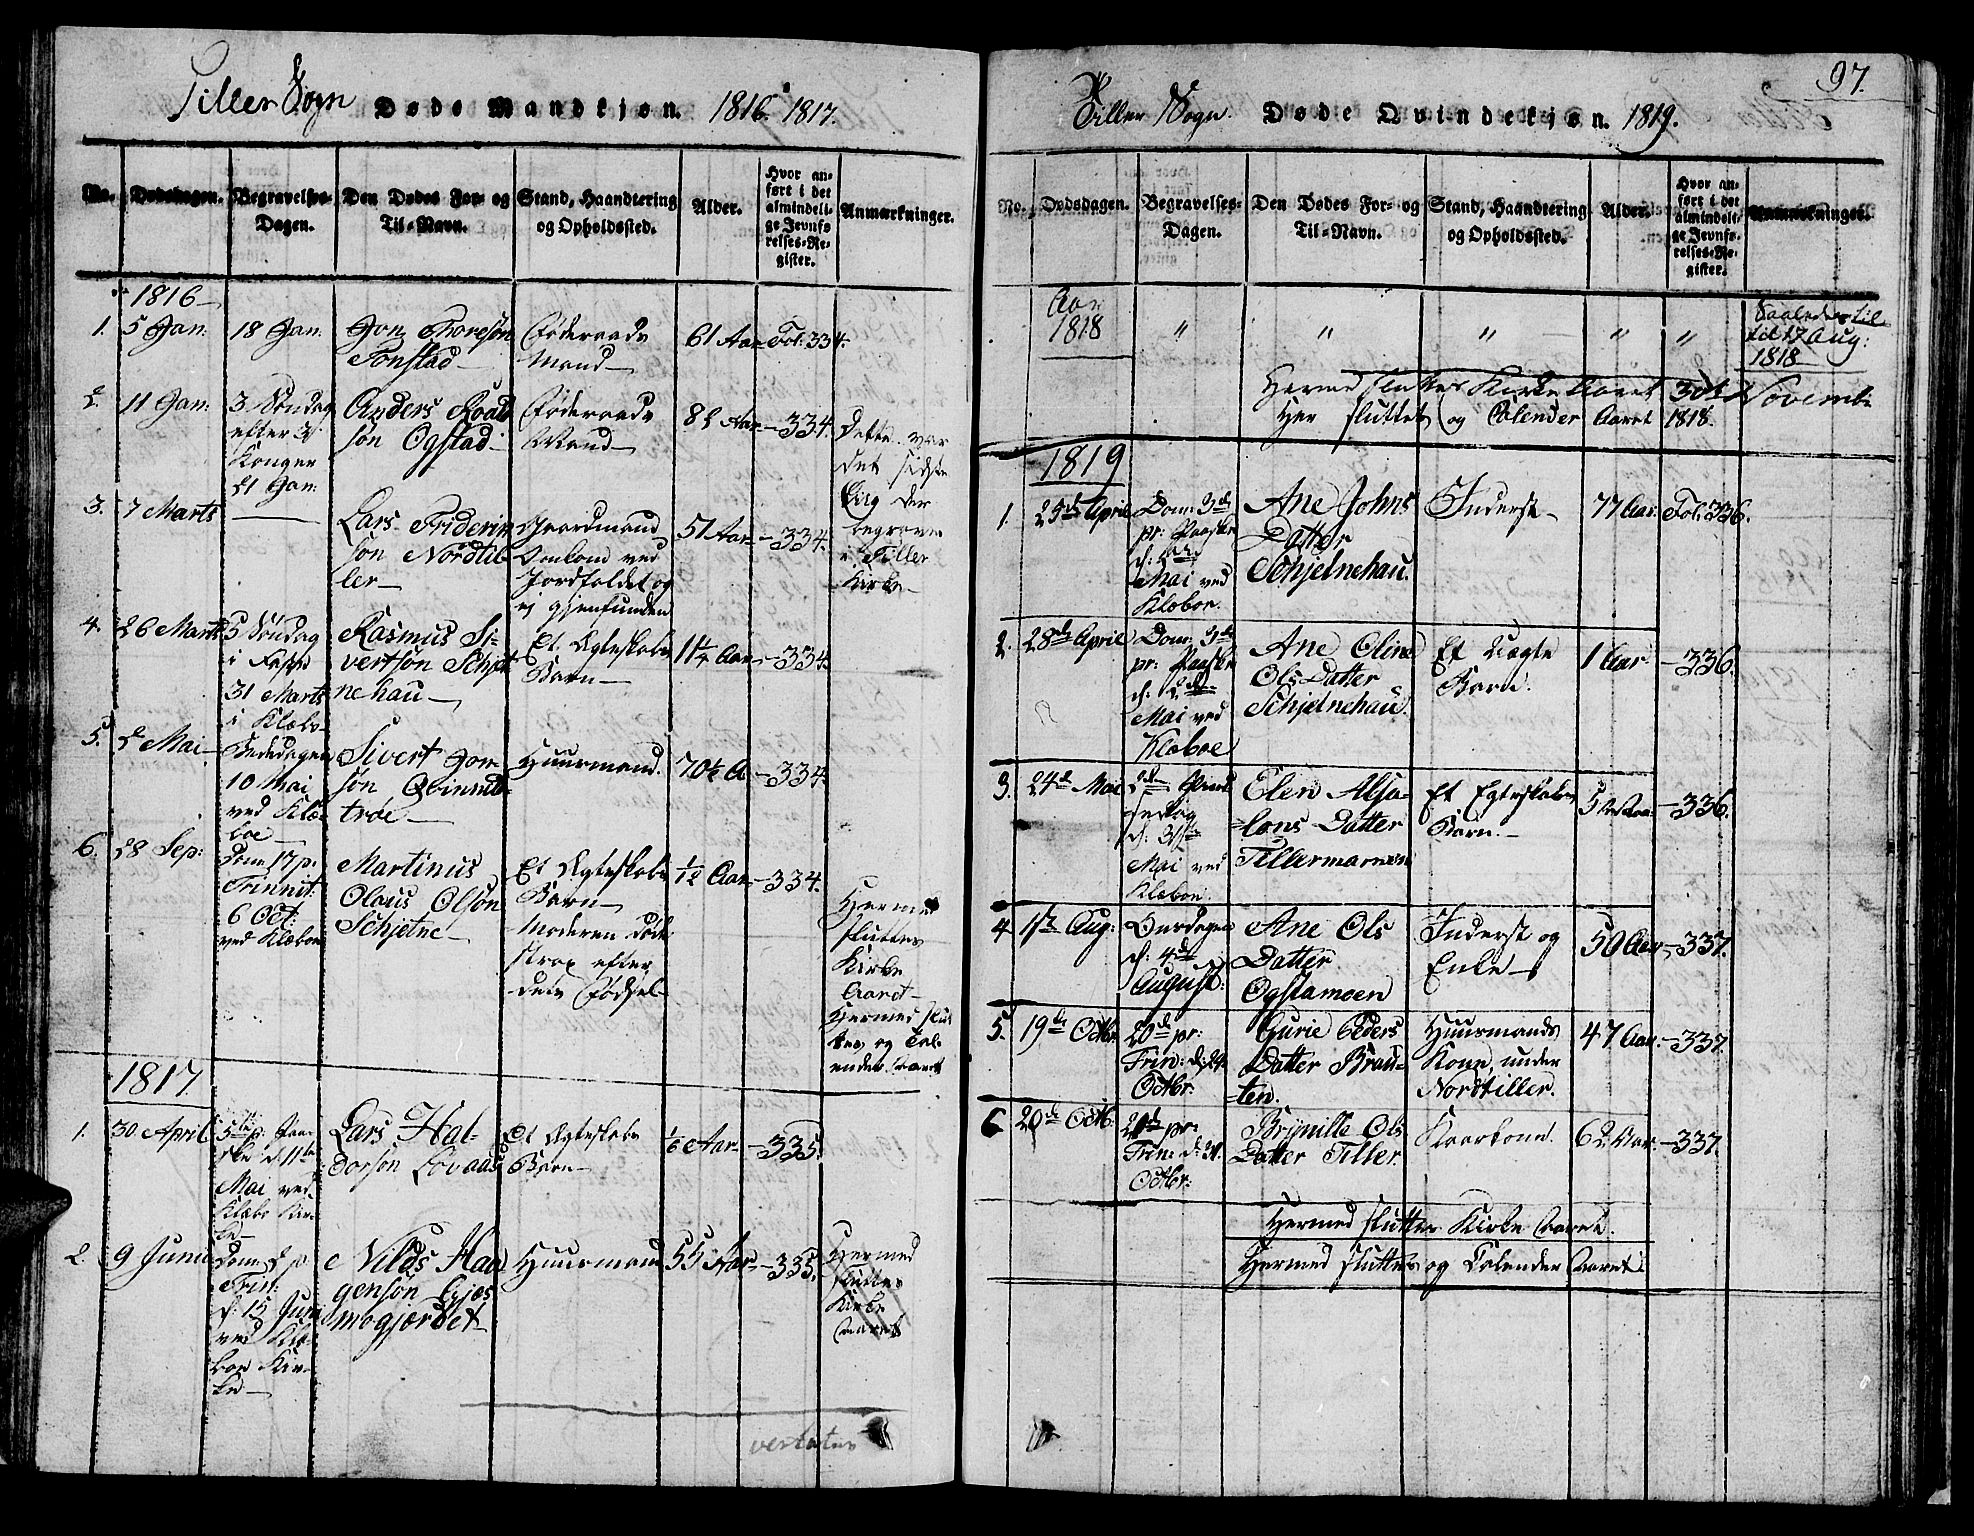 Tiller Sogn Døde Mandkjøn. 1816. 1817.
No.
Dødsdagen.
Begravelses-
Dagen.
Den Dødes For- og
Til-Navn.
Stand, Haandtering
og Opholdssted.
Alder.
Hvor an-
ført i det
almindeli-
ge Jevnfø-
relses-Re-
gister.
Anmærkninger.
1816
1. 5 Jan: 18 Jan: Jon Thoresøn
Tonstad
Føderaads
Mand
61 Aar Fol: 334.
2. 11 Jan:
3 Søndag
efter 3
Konger
21 Jan:
Anders Roald
søn Ogstad
Føderaads
Mand
82 Aar 334.
Dette var
det sidste
Liig der
begraves
v. Tiller
Kirke
3. 7 Marts
Lars Friderich
søn Nordtil
ler
Gaardmand
Omkom ved
Jordfaldet og
ej gjenfunden
51 Aar 334.
4. 26 Marts
5 Søndag
i Faste
31 Marts
i Klæbo
Rasmus Si-
vertsøn Schjet
nehau
Et Ægteskabs
Barn
11¼ Aar 334.
5. 2 Mai
Bededagen
10 Mai
ved Klæ-
boe
Sivert Jon-
søn Qvinnds-
trøe
Huusmand.
70½ A 334.
6. 28 Sep:
Dom 17 p:
Trinnit:
6 Oct:
ved Klæboe
Martinus
Olaus Olsøn
Schjetne
Et Ægteskabs
Barn
Moderen døde
strax efter
dets Fødsel
1/12 Aar 334.
Hermed
sluttes
Kirke
Aaret
Hermed slut
tes og Cal-
ender Aaret
1817.
1. 30 April
5te p: Paa-
ske d. 11te
Mai ved
Klæbo Kir-
ke
Lars Hal-
dorsøn Lovaas
Et Ægteskabs
Barn
1/6 Aar 335.
2. 9 Junii
Dom 2 p
Trin:
d: 15 Juni
ved Klæ-
boe Kir-
ke
Nilds Haa
gensøn Gjes
mogjerdet
Huusmand
55 Aar 335.
Hermed
sluttes
Kirke
Aaret
vertatur
97.
Tiller Sogn. Døde Qvindekjøn. 1819.
No.
Dødsdagen.
Begravelses-
Dagen.
Den Dødes For- og
Til-Navn.
Stand, Haandtering
og Opholdssted.
Alder.
Hvor an-
ført i det
almindeli-
ge Jevnfø-
relses-Re-
gister.
Anmærkninger.
Aar
1818 " " " " "
Saaledes til
til 17 Aug:
1818
Hermed sluttes Kirke Aaret 30te Novembr
Her sluttet og Calender Aaret 1818.
1819
1. 25de April
Dom: 3de
pr: Paaske
d: 2den
Mai ved
Klæboe.
Ane Johns
Datter
Schjelnehau.
Inderst
77 Aar. Fol: 336.
2. 28de April
Dom: 3de
pr: Paaske
d: 2den
Mai ved
Klæboe
Ane Oline
Ols Datter
Schjelnehau.
Et Uægte
Barn.
1 Aar 336.
3. 24de Mai
2den Pintse
dag
d: 31te
Mai ved
Klæboe.
Elen Absa-
lons Datter
Tillermarnen
Et Egteskabs
Barn.
336.
4 1ste Aug:
Onsdagen
d: 4de
August:
Ane Ols
Datter
Ogstamoen
Inderst og
Enke
50 Aar 337.
5. 19de Octbr
20de pr:
Trin: d: 24.
Octbr.
Gurie Peders
Datter Braa-
ten.
Huusmands
Kone, under
Nordtiller.
47 Aar. 337.
6 20de Octb.
pr:
Trin: d: 31.
Octbr:
Brynille Ols
Datter Tiller.
Kaarkone.
62 Aar. 337.
Hermed sluttes Kirke Aaret.
Hermed sluttes og Calender Aaret